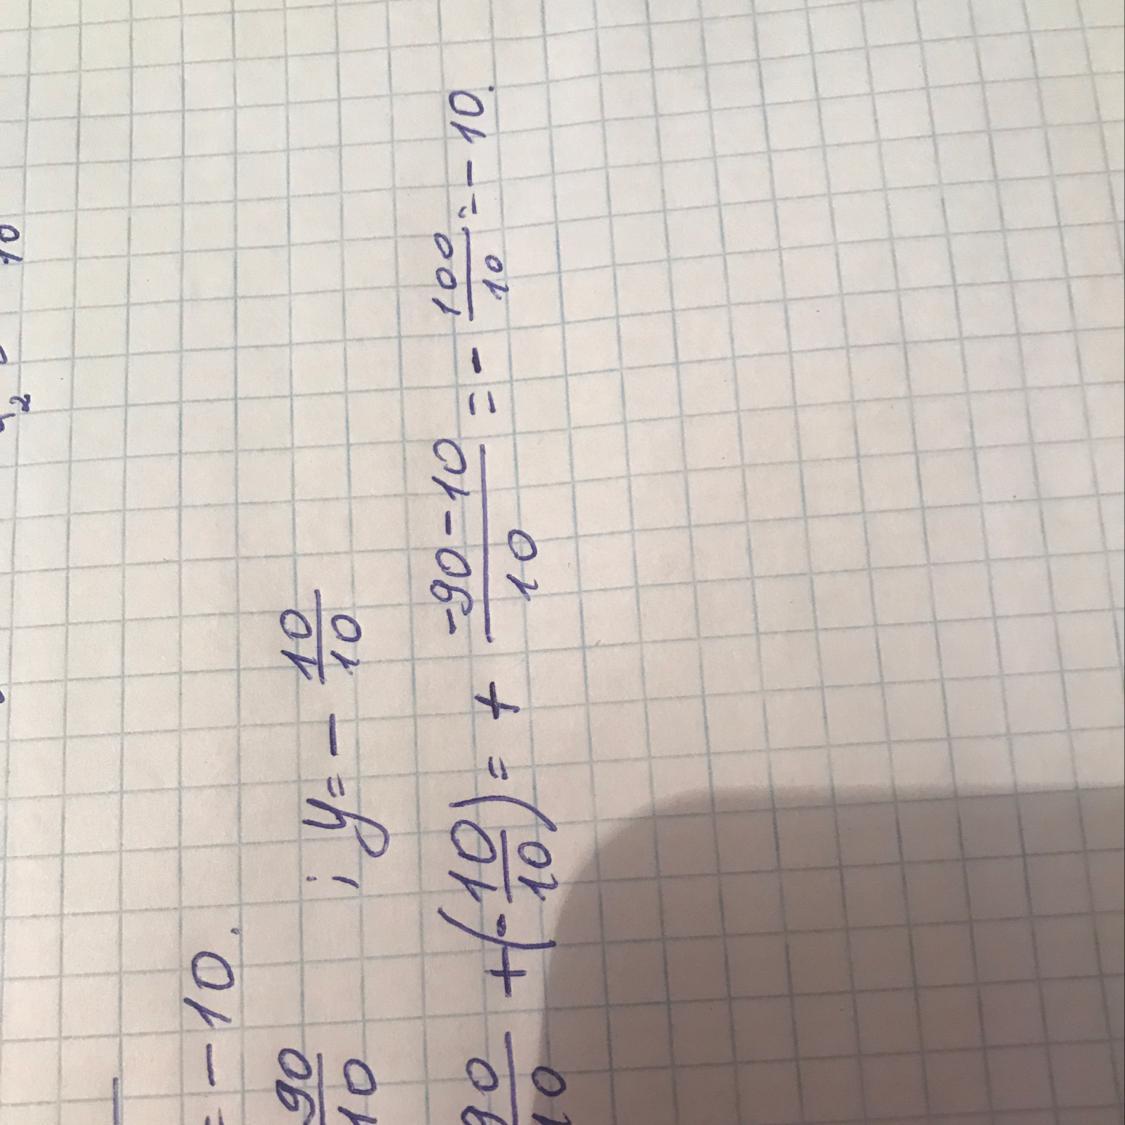 = -10.
90/10 ; y = - 10/10
90/10 + (- 10/10) = + -90-10/10 = - 100/10 = -10.